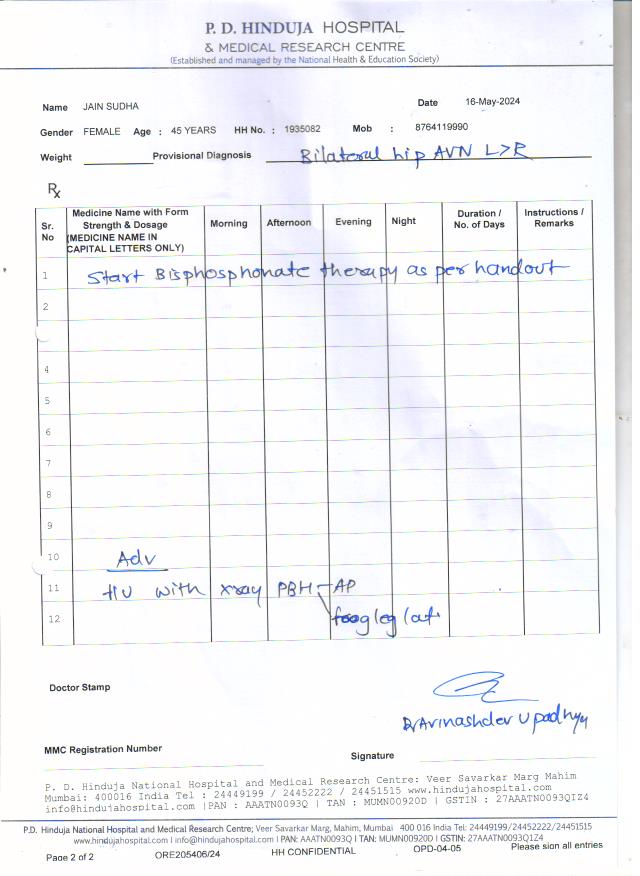 P. D. HINDUJA HOSPITAL
& MEDICAL RESEARCH CENTRE
(Established and managed by the National Health & Education Society)
Name JAIN SUDHA Date 16-May-2024
Gender FEMALE Age : 45 YEARS HH No. : 1935082 Mob : 8764119990
Weight Provisional Diagnosis Bilateral hip AVN L>R
Rx
Sr. No Medicine Name with Form Strength & Dosage (MEDICINE NAME IN CAPITAL LETTERS ONLY) Morning Afternoon Evening Night Duration / No. of Days Instructions / Remarks
1 Start Bisphosphonate therapy as per handout
2
4
5
6
7
8
9
10 Adv
11 f/u with xray PBH - AP
12 frog leg lat
Doctor Stamp
Dr Avinashdev Upadhyay
MMC Registration Number
Signature
P. D. Hinduja National Hospital and Medical Research Centre: Veer Savarkar Marg Mahim
Mumbai: 400016 India Tel : 24449199 / 24452222 / 24451515 www.hindujahospital.com
info@hindujahospital.com |PAN : AAATN0093Q | TAN : MUMN00920D | GSTIN : 27AAATN0093Q1Z4
P.D. Hinduja National Hospital and Medical Research Centre; Veer Savarkar Marg, Mahim, Mumbai 400 016 India Tel: 24449199/24452222/24451515
www.hindujahospital.com I info@hindujahospital.com I PAN: AAATN0093Q I TAN: MUMN00920D I GSTIN: 27AAATN0093Q1Z4
Page 2 of 2 ORE205406/24 HH CONFIDENTIAL OPD-04-05 Please sion all entries